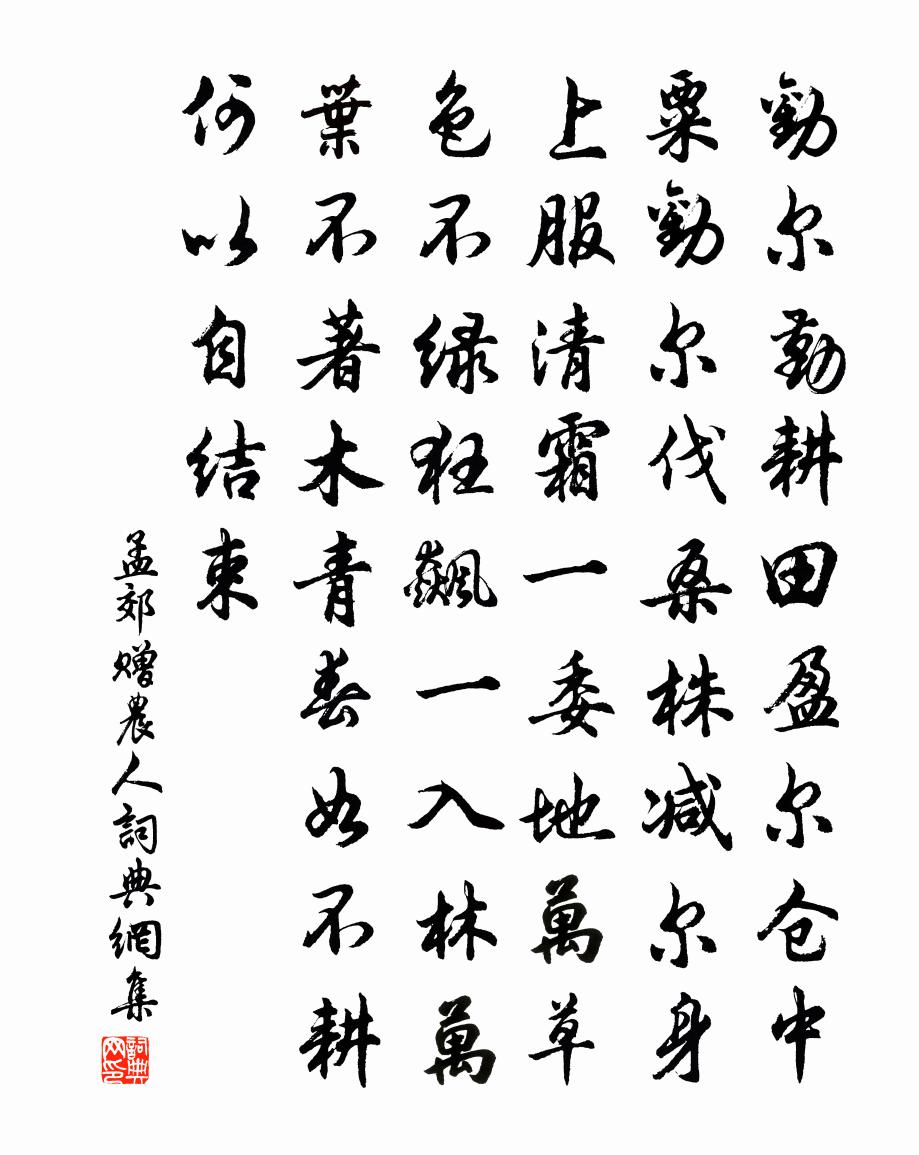 勸尔勤耕田盈尔仓中
粟勸尔伐桑株减尔身
上服清霜一委地萬草
色不绿狂飆一入林萬
葉不著木青春如不耕
何以自结束
孟郊赠農人詞典網集
詞典网印